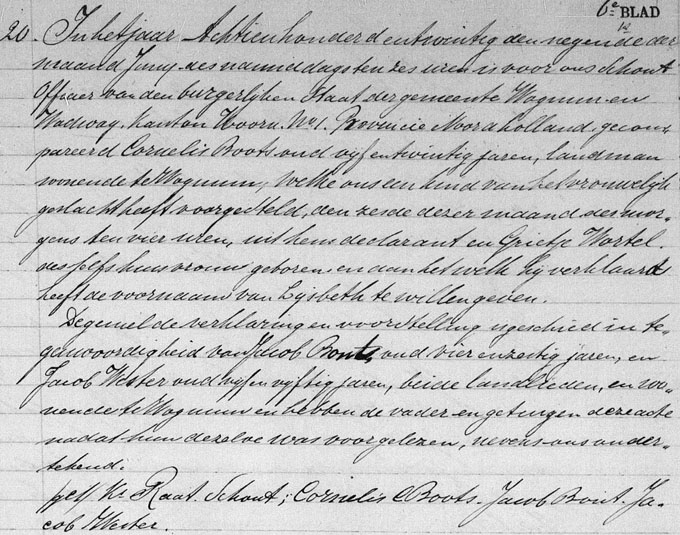 6e BLAD
20. In het jaar Achtienhonderd en twintig den negende der
maand Juny des namiddags ten zes uren is voor ons Schout
Officier van den burgerlyken Staat der gemeente Wognum en
Wadway, Kanton Hoorn No 1. Provincie Noord Holland, gecom-
pareerd Cornelis Boots oud vyf en twintig jaren, landman
wonende te Wognum, welke ons een kind van het vrouwelyk
geslacht heeft voorgesteld, den zesde dezer maand des mor-
gens ten vier uren, uit hem declarant en Grietje Wortel.
deszelfs huisvrouw geboren en aan het welk hy verklaard
heeft de voornaam van Lysbeth te willen geven.
De gemelde verklaring en voorstelling is geschied in te-
genwoordigheid van Jacob Bont, oud vier en zestig jaren, en
Jacob Wester oud vyf en vyftig jaren, beide landlieden, en wo-
nende te Wognum en hebben de vader en getuigen deze acte
nadat hun dezelve was voorgelezen, nevens ons onder-
tekend.
get/ Kr Raat. Schout; Cornelis C Boots. Jacob Bont. Ja-
cob Wester.